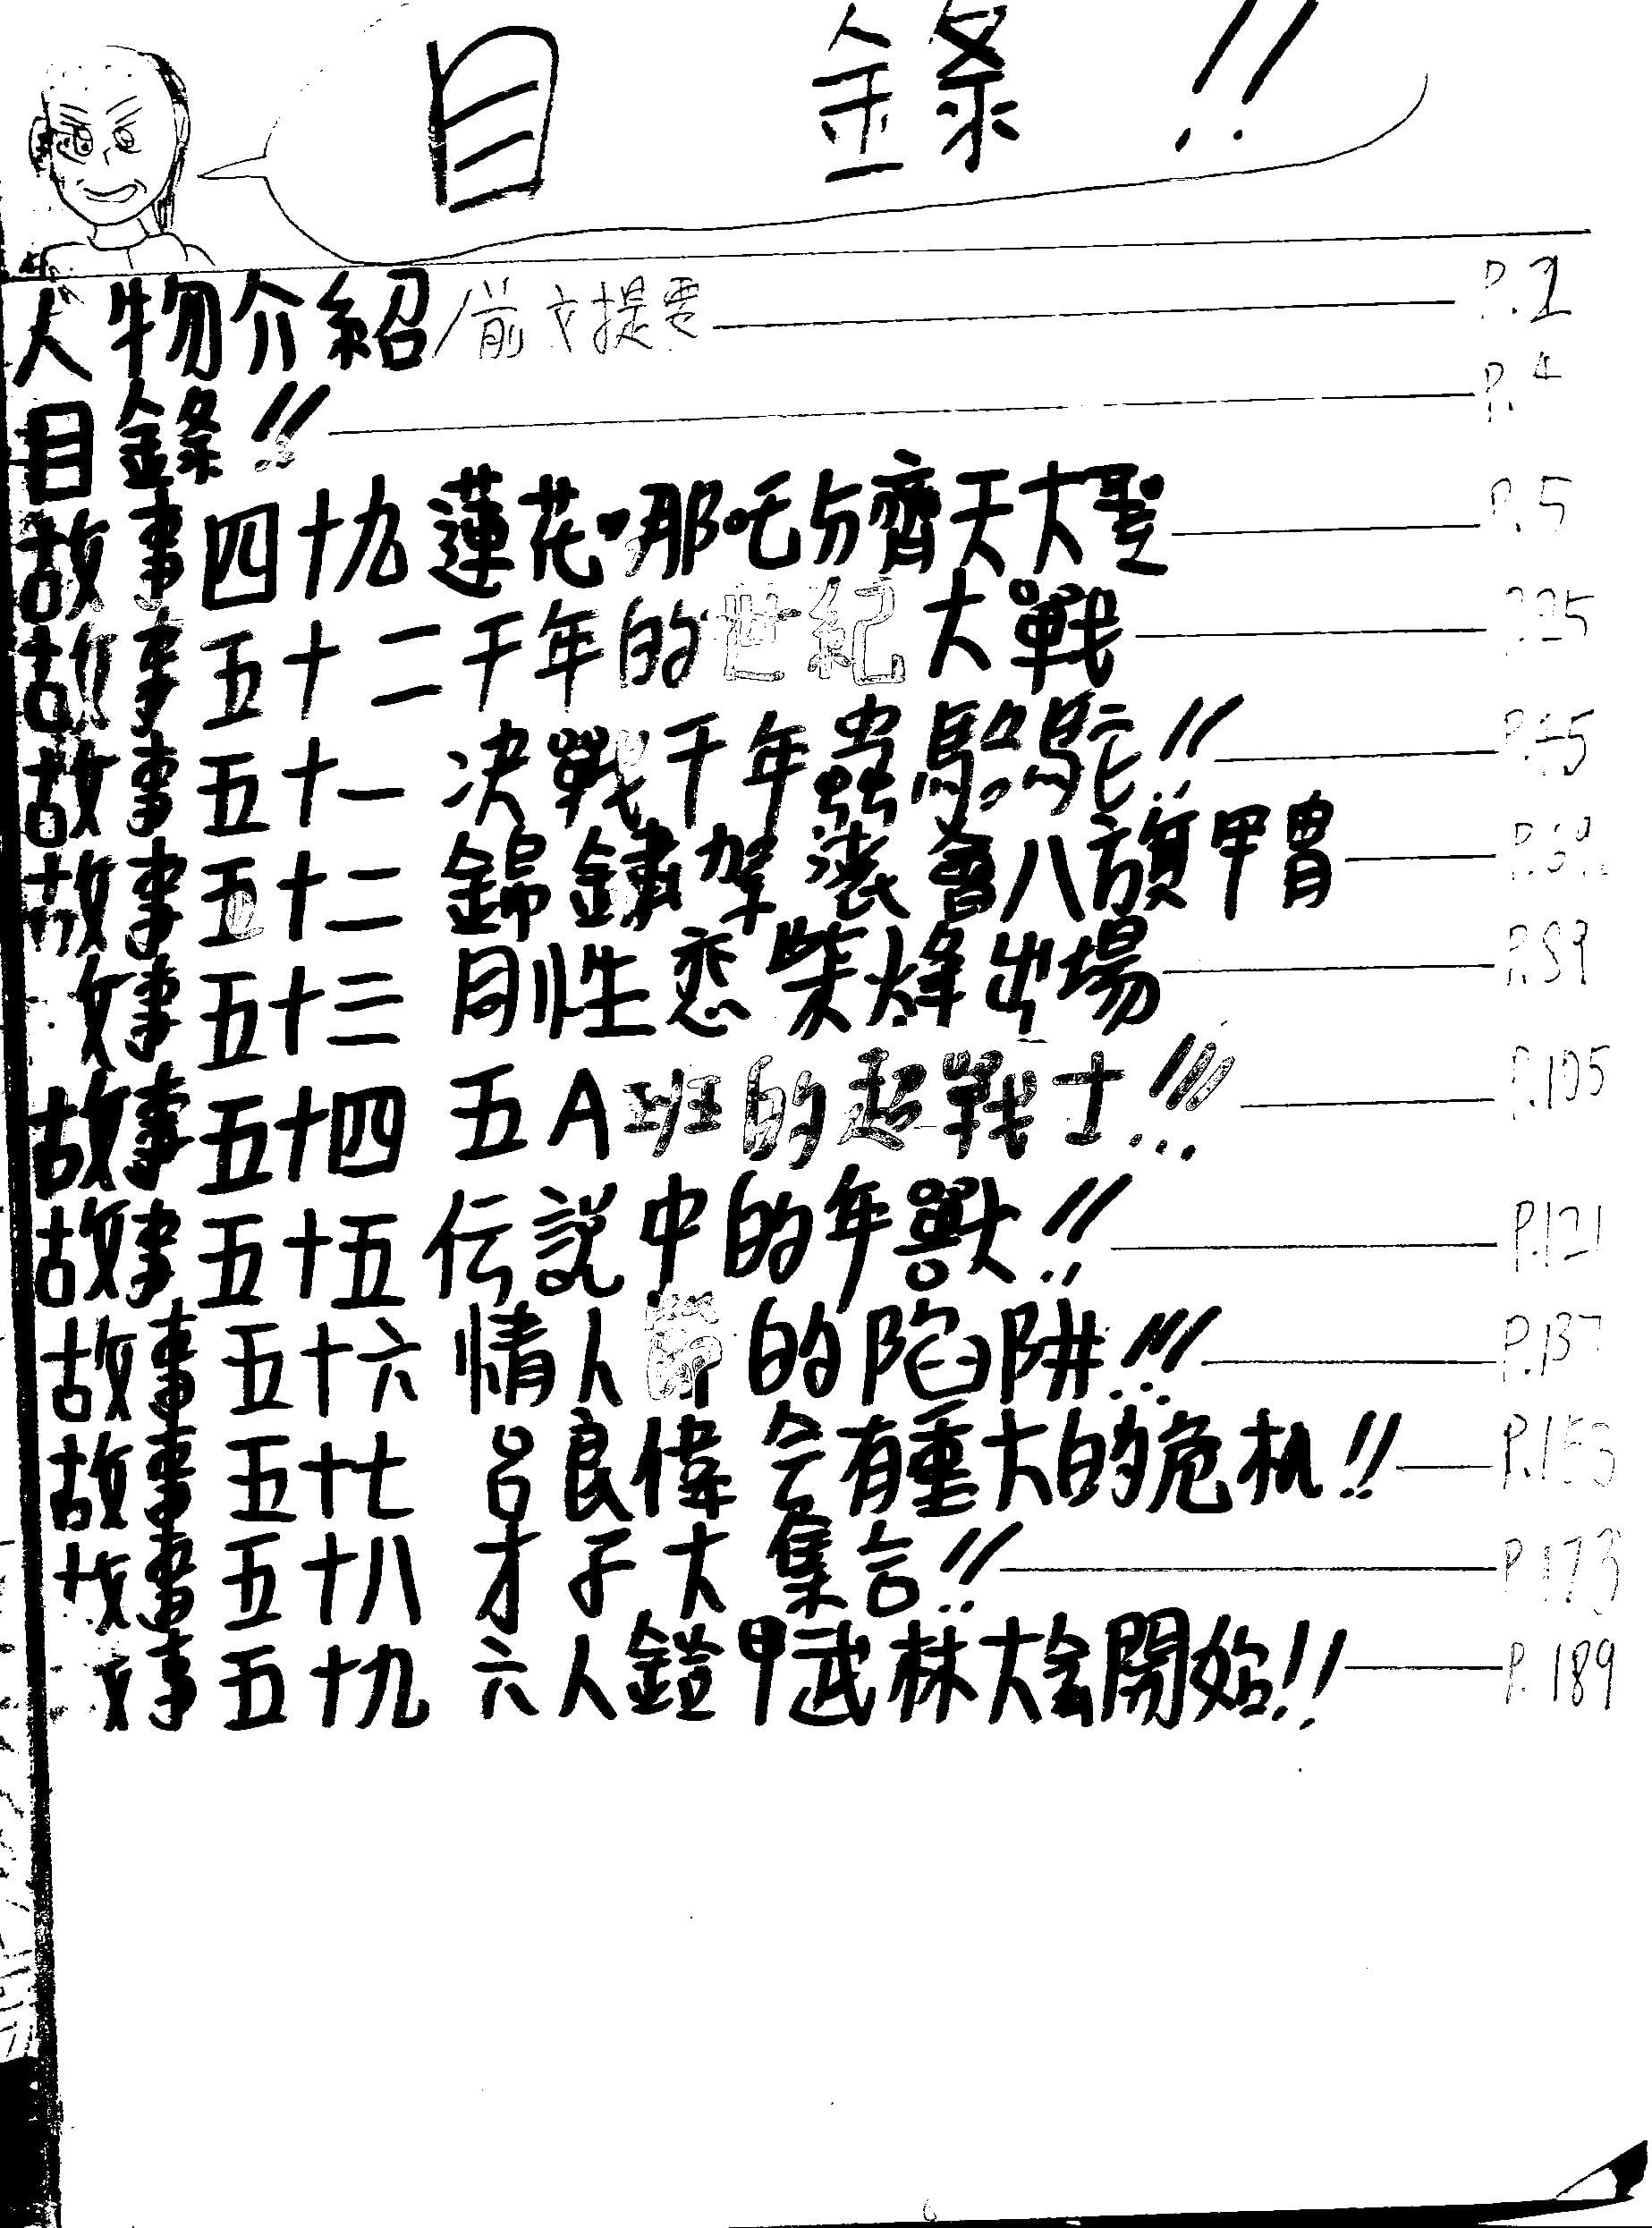 目 錄!!
人物介紹/前文提要 P.2
目錄!! P.4
故事四十九 蓮花哪吒与齊天大聖 P.5
故事五十 二千年的世紀大戰
故事五十一 決戰千年蟲駱駝!!
故事五十二 錦鏽袈裟會八旗甲胄
故事五十三 同性恋柴烽出場 P.89
故事五十四 五A班的超戰士!!! P.105
故事五十五 伝說中的年獸!! P.121
故事五十六 情人節的陷阱!!! P.137
故事五十七 呂良偉会有重大的危机!! P.153
故事五十八 才子大集合!! P.173
故事五十九 六人鎧甲武林大會開始!! P.189